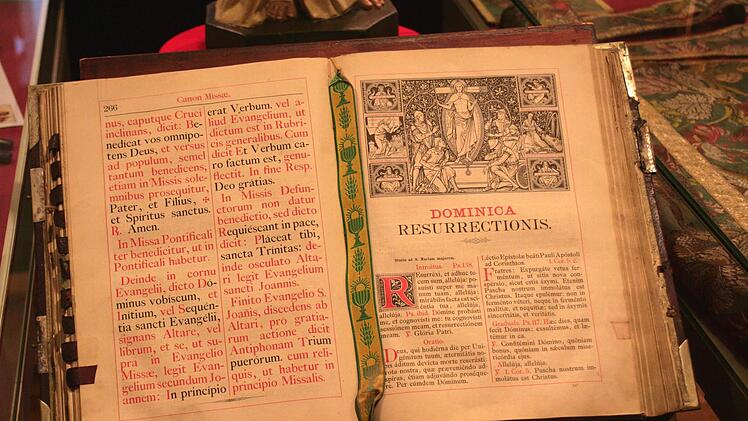 266
Canon Missæ.
nus, caputque Cruci
inclinans, dicit: Be-
nedicat vos omnipo-
tens Deus, et versus
ad populum, semel
tantum benedicens,
etiam in Missis solem-
nibus prosequitur,
Pater, et Filius, ✠
et Spiritus sanctus.
R. Amen.
In Missa Pontificali
ter benedicitur, ut in
Pontificali habetur.
Deinde in cornu
Evangelii, dicto Dó-
minus vobiscum, et
Initium, vel Sequén-
tia sancti Evangelii,
signans Altare, vel
librum, et se, ut su-
pra in Evangelio
Missæ, legit Evan-
gelium secundum Jo-
annem: In principio
erat Verbum. vel a-
liud Evangelium, ut
dictum est in Rubri-
cis generalibus. Cum
dicit Et Verbum ca-
ro factum est, genu-
flectit. In fine Resp.
Deo grátias.
In Missis Defun-
ctorum non datur
benedictio, sed dicto
Requiéscant in pace,
dicit: Pláceat tibi,
sancta Trínitas: de-
inde osculato Alta-
ri legit Evangelium
sancti Joannis.
Finito Evangelio S.
Joannis, discedens ab
Altari, pro gratia-
rum actione dicit
Antiphonam Trium
puerórum. cum reli-
quis, ut habetur in
principio Missalis.
DOMINICA
RESURRECTIONIS.
Statio ad S. Mariam majorem.
Introitus. Ps.138.
Resurréxi, et adhuc te-
cum sum, allelúja: po-
suísti super me ma-
num tuam, allelúja:
mirábilis facta est sci-
éntia tua, allelúja, al-
lelúja. Ps. ibid. Dómine probásti
me, et cognovísti me: tu cognovísti
sessiónem meam, et resurrectiónem
meam. ℣. Glória Patri.
Oratio.
Deus, qui hodiérna die per Uni-
génitum tuum, æternitátis no-
bis áditum devícta morte reserásti:
vota nostra, quæ præveniéndo ad-
spíras, étiam adjuvándo proséque-
re. Per eúmdem Dóminum.
Léctio Epístolæ beáti Pauli Apóstoli
ad Corínthios. I. Cor. 5. c.
Fratres: Expurgáte vetus fer-
méntum, ut sitis nova con-
spérsio, sicut estis ázymi. Etenim
Pascha nostrum immolátus est
Christus. Itaque epulémur: non in
ferménto véteri, neque in ferménto
malítiæ, et nequítiæ: sed in ázymis
sinceritátis, et veritátis.
Graduale. Ps.117. Hæc dies, quam
fecit Dóminus: exsultémus, et læ-
témur in ea.
℣. Confitémini Dómino, quóniam
bonus, quóniam in sǽculum mise-
ricórdia ejus.
Allelúja, allelúja.
℣. I. Cor. 5. Pascha nostrum im-
molátus est Christus.